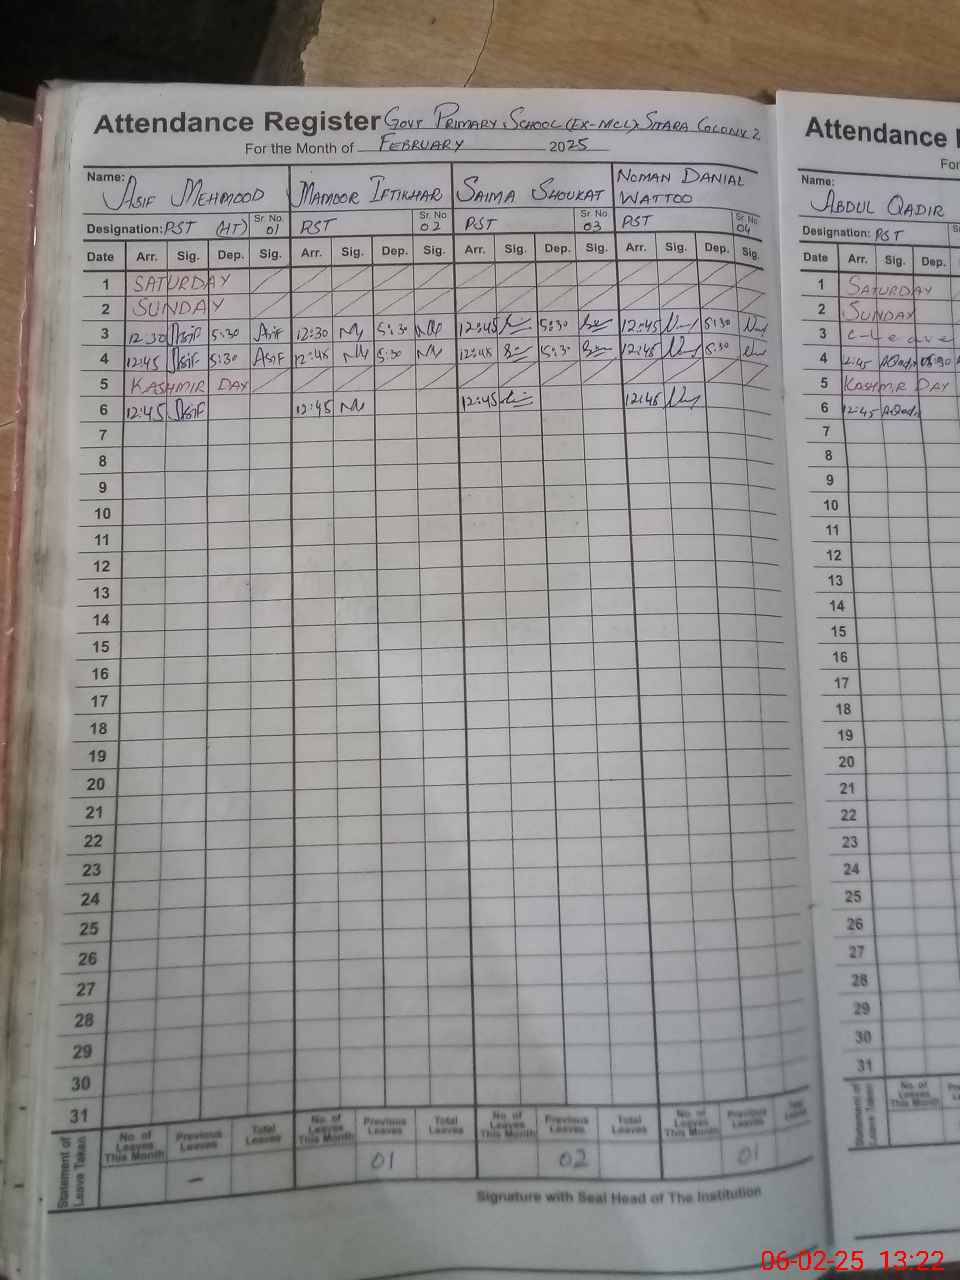 Attendance Register Govt Primary School (Ex-MCL) Sitara Colony 2
For the Month of February 2025
Name: Asif Mehmood Mamoor Iftikhar Saima Shoukat Noman Danial Wattoo
Designation: PST (HT) Sr. No. 01 PST Sr. No. 02 PST Sr. No. 03 PST Sr. No. 04
Date Arr. Sig. Dep. Sig. Arr. Sig. Dep. Sig. Arr. Sig. Dep. Sig. Arr. Sig. Dep. Sig.
1 SATURDAY
2 SUNDAY
3 12:30 Asif 5:30 Asif 12:30 5:30 12:45 5:30 12:45 5:30
4 12:45 Asif 5:30 Asif 12:45 5:30 12:45 5:30 12:45 5:30
5 KASHMIR DAY
6 12:45 Asif 12:45 12:45 12:45
7
8
9
10
11
12
13
14
15
16
17
18
19
20
21
22
23
24
25
26
27
28
29
30
31
Statement of Leave Taken
No. of Leaves This Month Previous Leaves Total Leaves No. of Leaves This Month Previous Leaves Total Leaves No. of Leaves This Month Previous Leaves Total Leaves No. of Leaves This Month Previous Leaves Total Leaves
- 01 02 01
Signature with Seal Head of The Institution
Attendance
For
Name:
Abdul Qadir
Designation: PST
Date Arr. Sig. Dep.
1 SATURDAY
2 SUNDAY
3 C-Leave
4 12:45 AQadir 05:30
5 Kashmir DAY
6 12:45 AQadir
7
8
9
10
11
12
13
14
15
16
17
18
19
20
21
22
23
24
25
26
27
28
29
30
31
Statement of Leave Taken
No. of Leaves This Month
06-02-25 13:22